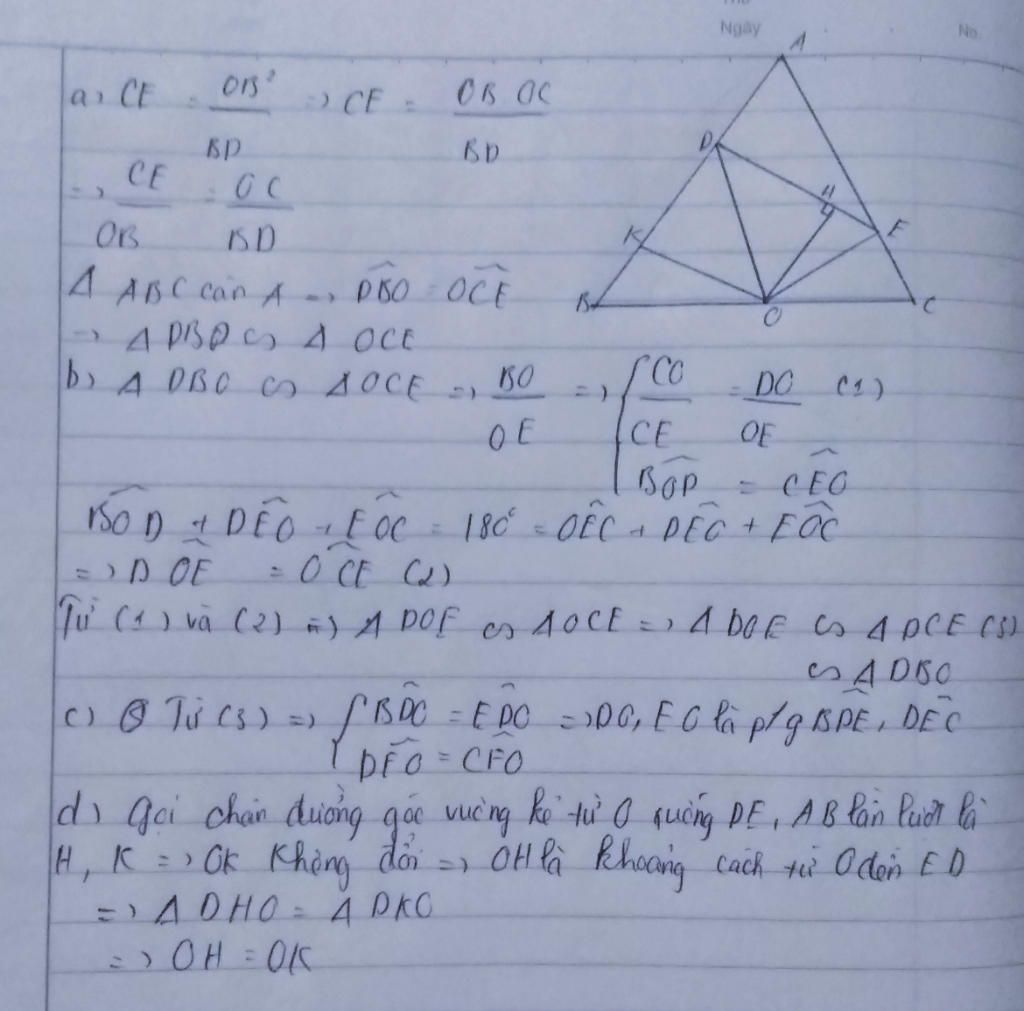 Ngày No.
a) CE = OB² / BD => CE = OB OC / BD
=> CE / OB = OC / BD
Δ ABC cân A => DBO^ = OCE^
=> Δ DBO ∽ Δ OCE
b) Δ DBO ∽ Δ OCE => BO / OE => { CO / CE = DO / OE (1)
BOD^ = CEO^
BOD^ + DEO^ + EOC^ = 180° = OEC^ + DEO^ + EOC^
=> DOE^ = OCE^ (2)
Từ (1) và (2) => Δ DOE ∽ Δ OCE => Δ DOE ∽ Δ DCE (3)
∽ Δ DBO
c) Từ (3) => { BDO^ = EDO^ => DO, EO là p/g BDE^, DEC^
DEO^ = CEO^
d) Gọi chân đường góc vuông kẻ từ O xuống DE, AB lần lượt là
H, K => OK Không đổi => OH là khoảng cách từ O đến ED
=> Δ DHO = Δ DKO
=> OH = OK
A
D
H
K
E
B
O
C